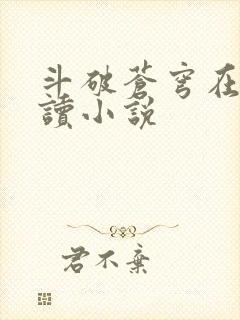 斗破蒼穹在
讀小說
君不棄